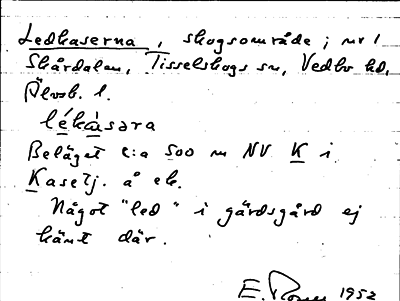 Ledkaserna, skogsområde; nv 1
Skårdalen, Tisselskogs sn, Vedbo hd,
Älvsb. l.
lékàsara
Beläget c:a 500 m NV K i
Kasetj. å ek.
Något "led" i gärdsgård ej
känt där.
E. 1952